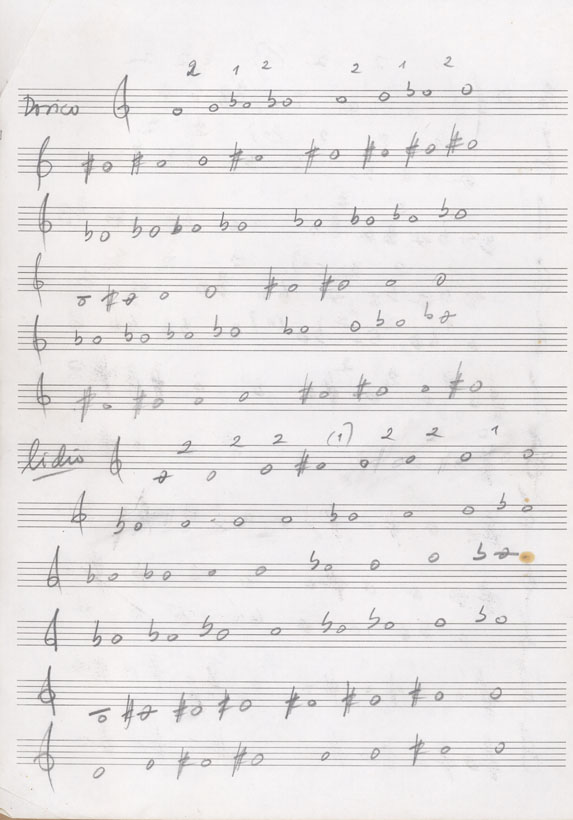 2 1 2 2 1 2
Dorico
2 2 2 (1) 2 2 1
lidio